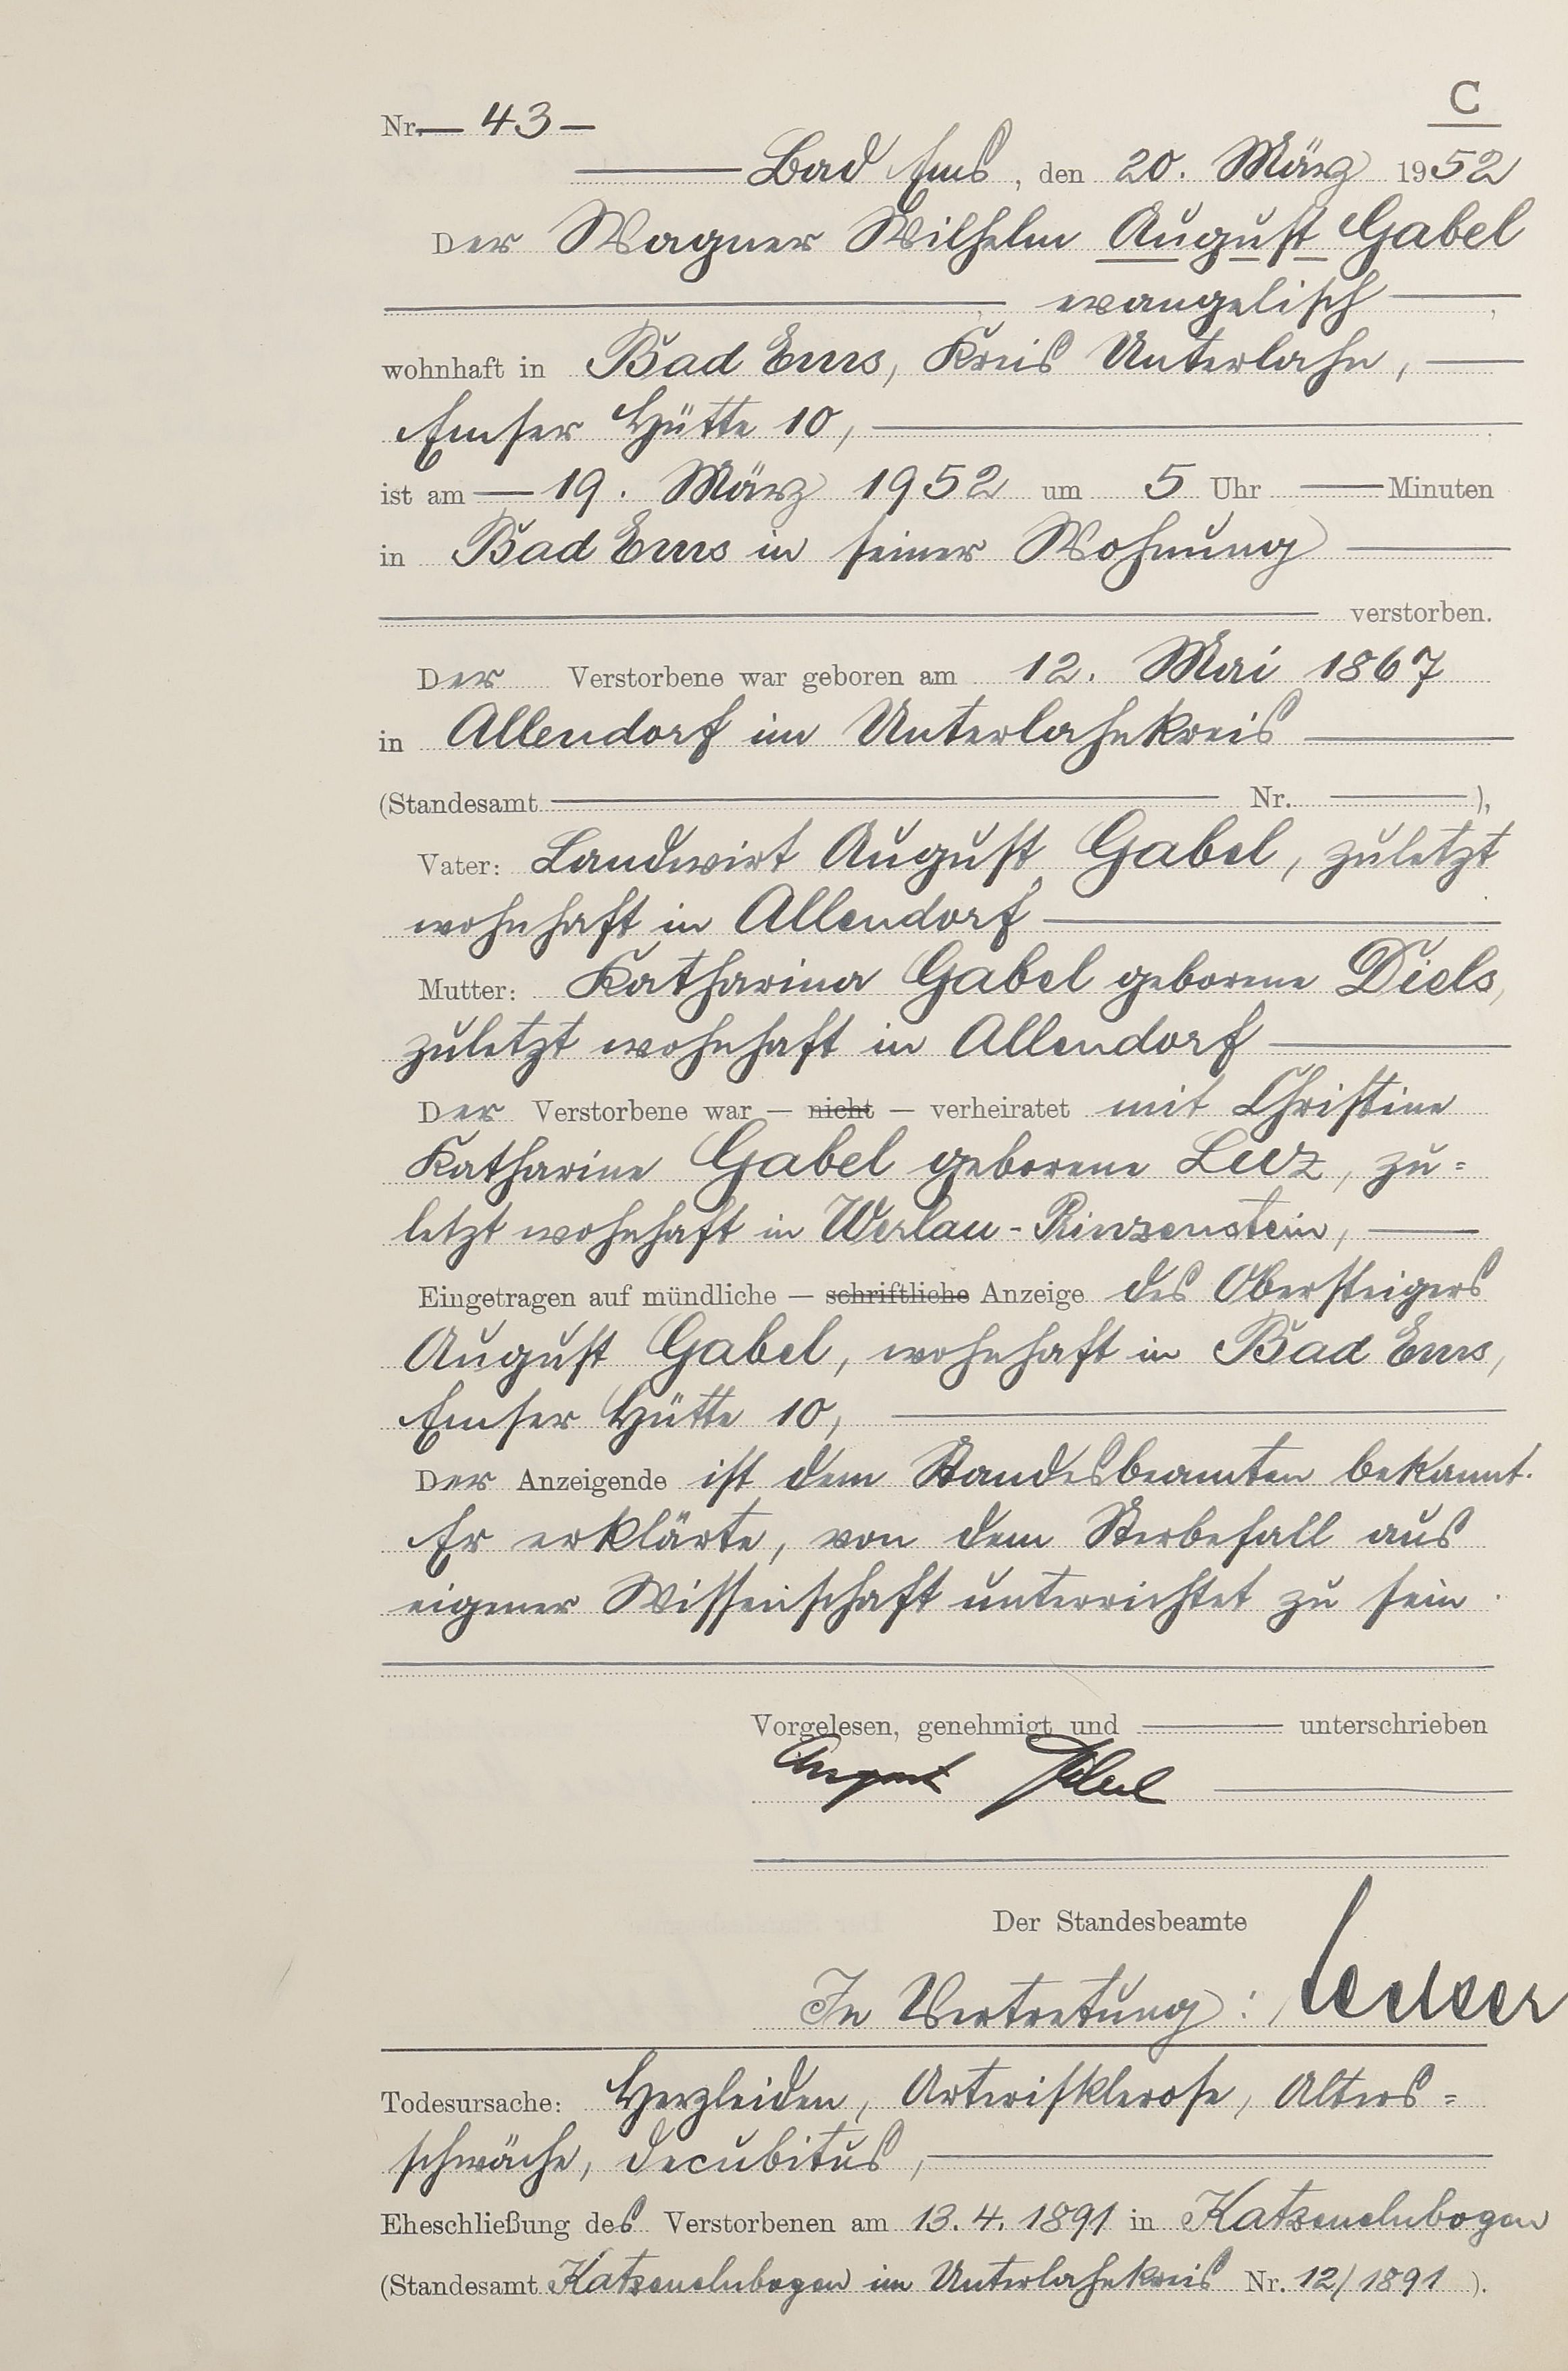 C
Nr. — 43 —
Bad Ems, den 20. März 1952
Der Wagner Wilhelm August Gabel
evangelisch,
wohnhaft in Bad Ems, Kreis Unterlahn,
Emser Hütte 10,
ist am — 19. März 1952 um 5 Uhr — Minuten
in Bad Ems in seiner Wohnung
verstorben.
Der Verstorbene war geboren am 12. Mai 1867
in Allendorf im Unterlahnkreis
(Standesamt — Nr. — ),
Vater: Landwirt August Gabel, zuletzt
wohnhaft in Allendorf
Mutter: Katharina Gabel geborene Diels,
zuletzt wohnhaft in Allendorf
Der Verstorbene war — nicht — verheiratet mit Christine
Katharine Gabel geborene Luz, zu=
letzt wohnhaft in Werlau-Prinzenstein,
Eingetragen auf mündliche — schriftliche Anzeige des Obersteigers
August Gabel, wohnhaft in Bad Ems,
Emser Hütte 10,
Der Anzeigende ist dem Standesbeamten bekannt.
Er erklärte, von dem Sterbefall aus
eigener Wissenschaft unterrichtet zu sein.
Vorgelesen, genehmigt und — unterschrieben
August Gabel
Der Standesbeamte
In Vertretung:
Todesursache: Herzleiden, Arterisklerose, Alters=
schwäche, Decubitus,
Eheschließung des Verstorbenen am 13.4.1891 in Katzenelnbogen
(Standesamt Katzenelnbogen im Unterlahnkreis Nr. 12/1891 ).